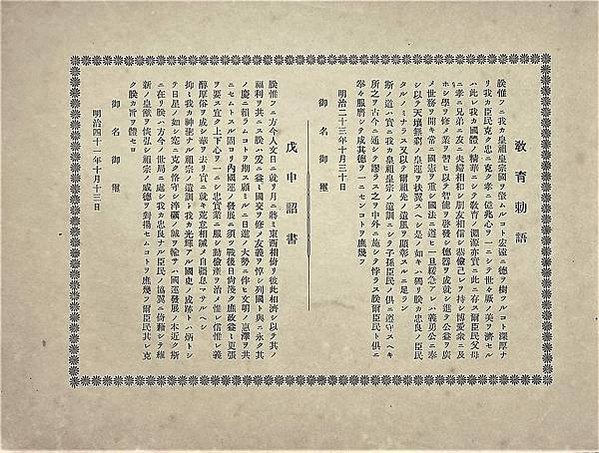 敎育勅語
朕惟フニ我カ皇祖皇宗國ヲ肇ムルコト宏遠ニ德ヲ樹ツルコト深厚ナ
リ我カ臣民克ク忠ニ克ク孝ニ億兆心ヲ一ニシテ世々厥ノ美ヲ濟セル
ハ此レ我カ國體ノ精華ニシテ敎育ノ淵源亦實ニ此ニ存ス爾臣民父母
ニ孝ニ兄弟ニ友ニ夫婦相和シ朋友相信シ恭儉己レヲ持シ博愛衆ニ及
ホシ學ヲ修メ業ヲ習ヒ以テ智能ヲ啓發シ德器ヲ成就シ進テ公益ヲ廣
メ世務ヲ開キ常ニ國憲ヲ重シ國法ニ遵ヒ一旦緩急アレハ義勇公ニ奉
シ以テ天壤無窮ノ皇運ヲ扶翼スヘシ是ノ如キハ獨リ朕カ忠良ノ臣民
タルノミナラス又以テ爾祖先ノ遺風ヲ顯彰スルニ足ラン
斯ノ道ハ實ニ我カ皇祖皇宗ノ遺訓ニシテ子孫臣民ノ俱ニ遵守スヘキ
所之ヲ古今ニ通シテ謬ラス之ヲ中外ニ施シテ悖ラス朕爾臣民ト俱ニ
拳々服膺シテ咸其德ヲ一ニセンコトヲ庶幾フ
明治二十三年十月三十日
御名御璽
戊申詔書
朕惟フニ方今人文日ニ就リ月ニ將ミ東西相倚リ彼此相濟シ以テ其ノ
福利ヲ共ニス朕ハ爰ニ益々國交ヲ修メ友義ヲ惇シ列國ト與ニ永ク其
ノ慶ニ賴ラムコトヲ期ス顧ミルニ日進ノ大勢ニ伴ヒ文明ノ惠澤ヲ共
ニセムトスル固ヨリ內國運ノ發展ニ須ツ戰後日尙淺ク庶政益々更張
ヲ要ス宜ク上下心ヲ一ニシ忠實業ニ服シ勤儉產ヲ治メ惟レ信惟レ義
醇厚俗ヲ成シ華ヲ去リ實ニ就キ荒怠相誡メ自彊息マサルヘシ
抑々我カ神聖ナル祖宗ノ遺訓ト我カ光輝アル國史ノ成跡トハ炳トシ
テ日星ノ如シ寔ニ克ク恪守シ淬礪ノ誠ヲ輸サハ國運發展ノ本近ク斯
ニ在リ朕ハ方今ノ世局ニ處シ我カ忠良ナル臣民ノ協翼ニ倚藉シテ維
新ノ皇猷ヲ恢弘シ祖宗ノ威德ヲ對揚セムコトヲ庶幾フ爾臣民其レ克
ク朕カ旨ヲ體セヨ
御名御璽
明治四十一年十月十三日